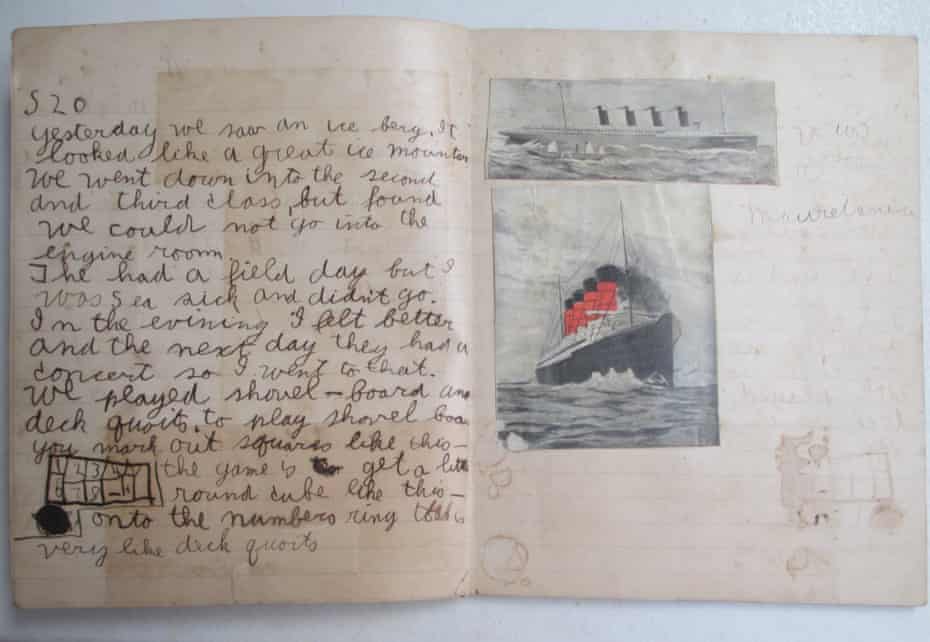 S 20
Yesterday we saw an ice berg. It
looked like a great ice mountan
We went down into the second
and third class, but found
we could not go into the
engine room
The had a field day but I
was sea sick and didn't go.
In the evining I felt better
and the next day they had a
concert so I went to that.
We played shovel-board and
deck quoits. to play shovel boa
you mark out squares like this-
1 2 3
the game is to get a litt
7 8 - 10
round cube like this-
onto the numbers ring
very like deck quoits
Mauretania